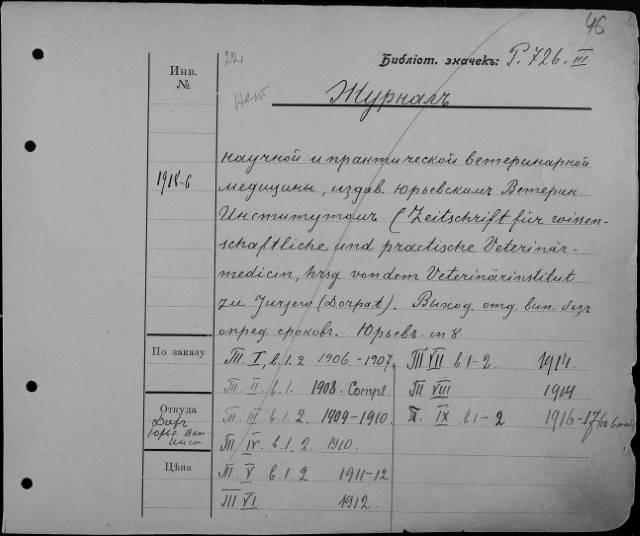 46
Библіот. значекъ: Р.726.III
Инв.
№
22
Нет
Журналъ
1918-6
научной и практической ветеринарной
медицины, издав. Юрьевскимъ Ветерин.
Институтомъ (Zeitschrift für wissen-
schaftliche und practische Veterinär-
medicin, hrsg von dem Veterinärinstitut
zu Jurjew (Dorpat). Выход. отд. вып. безъ
опред. сроковъ. Юрьевъ in 8
По заказу
Т. I, в.1.2 1906-1907.
Т. II. в.1. 1908. Compl.
Т. III в.1.2. 1909-1910.
Т. IV. в.1.2. 1910.
Т. V в.1 2 1911-12
Т VI 1912
Т VII в 1-2 1914
Т VIII 1914
Т. IX в 1-2 1916-17
Откуда
Даръ
Цѣна